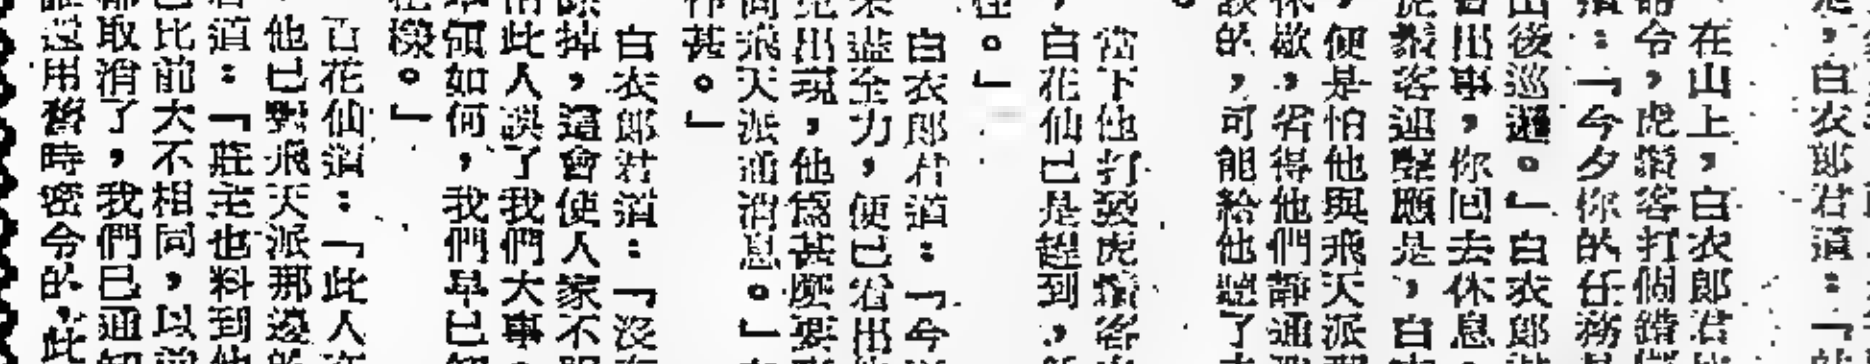 ，白衣郎君道：「
在山上，白衣郎君
令，虎鬚客打個
：「今夕你的任務
後巡邏。」白衣郎
出事，你回去休息，
鬚客連聲應是，白
，便是怕他與飛天派
歇，省得他們靜通
的，可能給他聽了
當下他打發虎鬚客
，白花仙已是趕到，
。」
白衣郎君道：「今
盡全力，便已看出
出現，他為甚麼要
飛天派通消息。」
甚。」
白衣郎君道：「沒
掉，這會使人家不
此人誤了我們大事。
領如何，我們早已
樣。」
百花仙道：「此人
他已對飛天派那邊
道：「莊主也料到他
比前大不相同，以前
取消了，我們已通知
還用舊時密令的，此